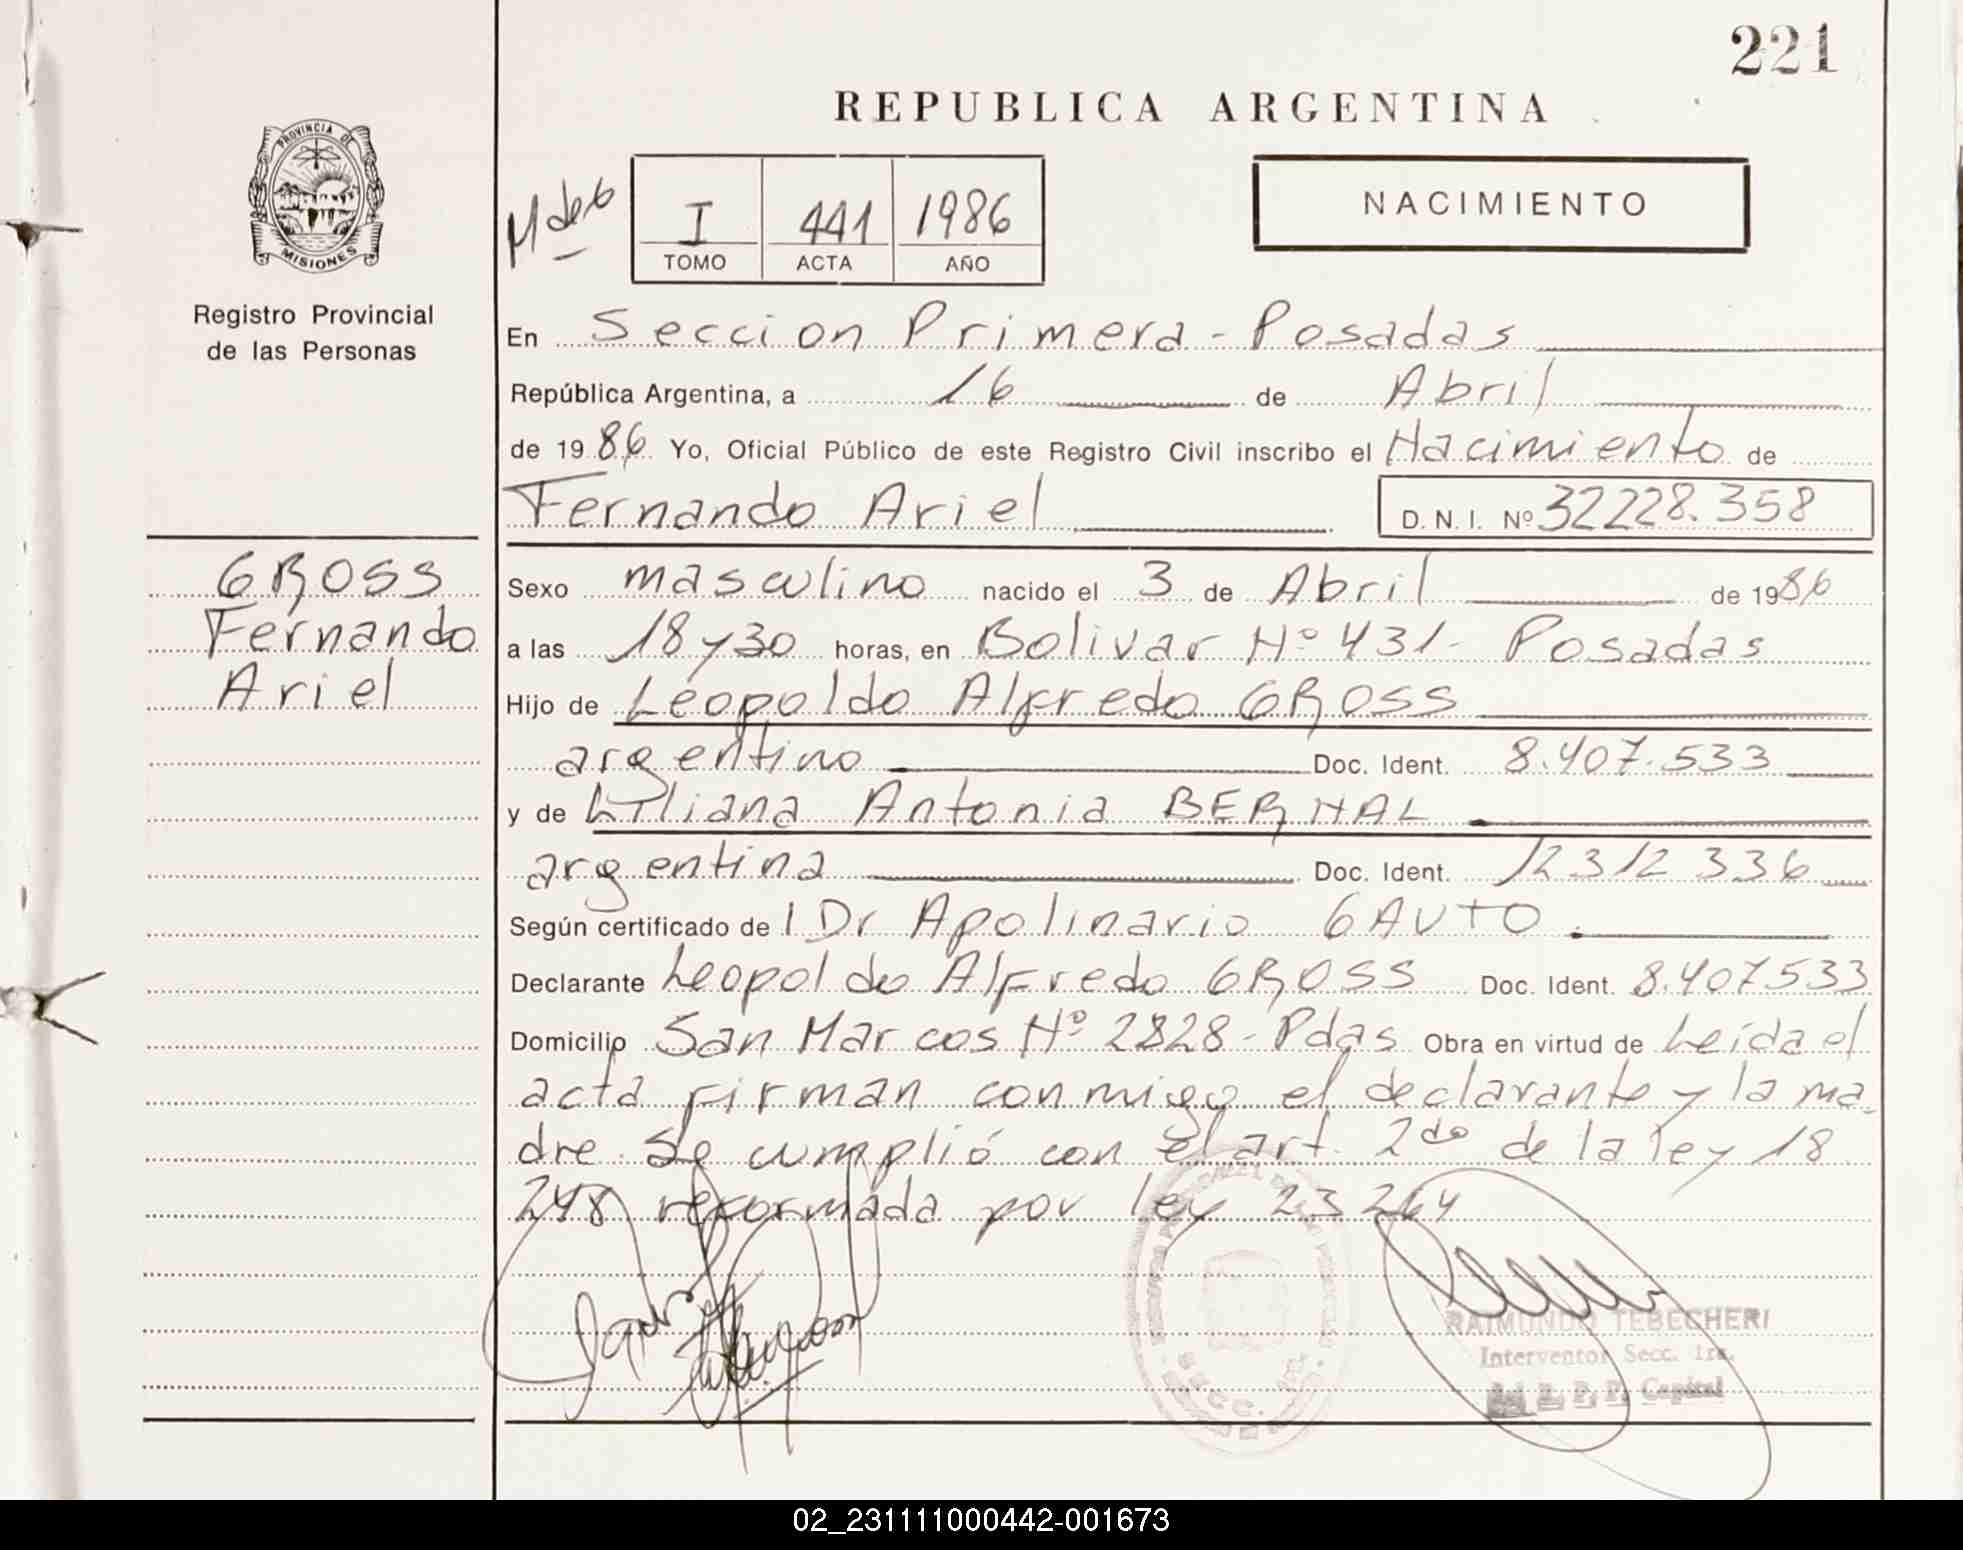 221
REPUBLICA ARGENTINA
PROVINCIA DE
MISIONES
Registro Provincial
de las Personas
I 441 1986
TOMO ACTA AÑO
NACIMIENTO
En Seccion Primera - Posadas
República Argentina, a 16 de Abril
de 1986 Yo, Oficial Público de este Registro Civil inscribo el Nacimiento de
Fernando Ariel D. N. I. Nº 32228.358
GROSS
Fernando
Ariel
Sexo masculino nacido el 3 de Abril de 1986
a las 18 y 30 horas, en Bolivar Nº 431 - Posadas
Hijo de Leopoldo Alfredo GROSS
argentino Doc. Ident. 8.407.533
y de Liliana Antonia BERNAL
argentina Doc. Ident. 12312336
Según certificado de l Dr Apolinario GAUTO
Declarante Leopoldo Alfredo GROSS Doc. Ident. 8.407533
Domicilio San Marcos Nº 2828 - Pdas Obra en virtud de Leída el
acta firman conmigo el declarante y la ma-
dre. Se cumplió con el art. 2do de la ley 18
248 reformada por ley 23264
RAIMUNDO TEBECHERI
Interventor Secc. 1ra.
Capital
02_231111000442-001673